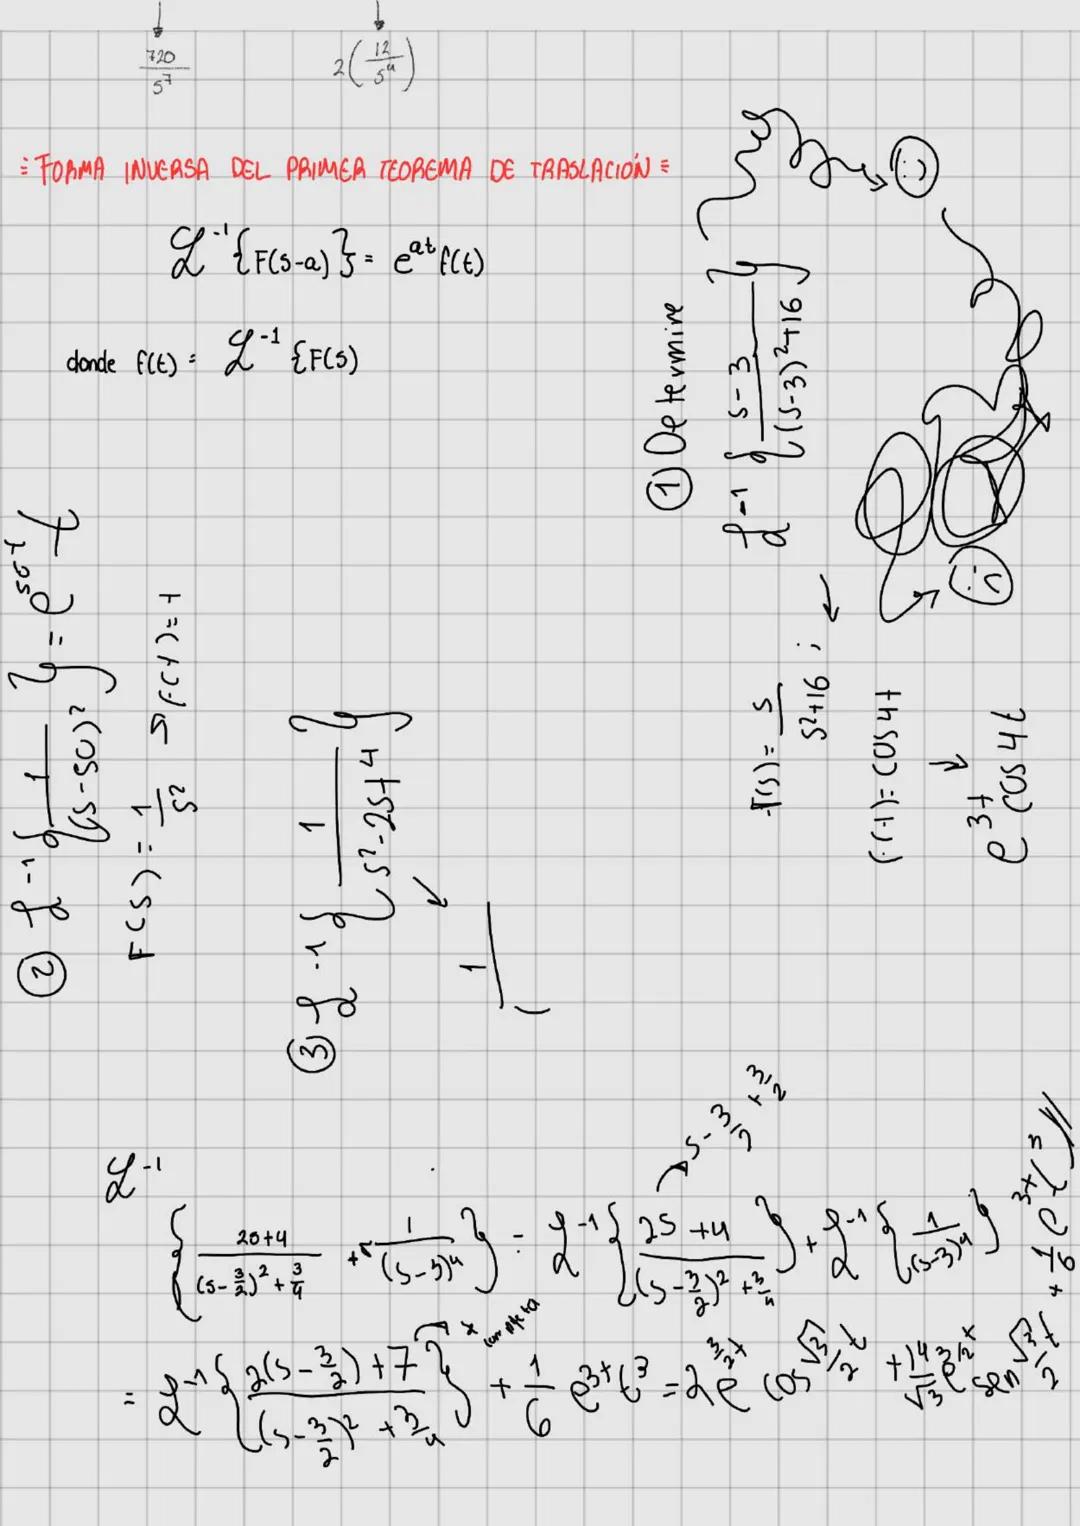 720/s⁷ 2(12/s⁴)
= FORMA INVERSA DEL PRIMER TEOREMA DE TRASLACIÓN =
ℒ⁻¹{F(s-a)} = eᵃᵗ f(t)
donde f(t) = ℒ⁻¹ {F(s)
① Determine
ℒ⁻¹ { s-3 / (s-3)²+16 }
F(s) = s / s²+16 ;
f(t) = cos 4t
e³ᵗ cos 4t
② ℒ⁻¹ { 1 / (s-50)² } = e⁵⁰ᵗ t
F(s) = 1/s² → f(t) = t
③ ℒ⁻¹ { 1 / s²-2s+4 }
1 / (
ℒ⁻¹
{ 2s+4 / (s-3/2)²+3/4 + 1 / (s-3)⁴ } = ℒ⁻¹ { 2s+4 / (s-3/2)²+3/4 } + ℒ⁻¹ { 1 / (s-3)⁴ }
s-3/2+3/2
= ℒ⁻¹ { 2(s-3/2)+7 / (s-3/2)²+3/4 } + 1/6 e³ᵗ t³ = 2e^(3/2 t) cos √3/2 t + 14/√3 e^(3/2 t) sen √3/2 t + 1/6 e³ᵗ t³ //